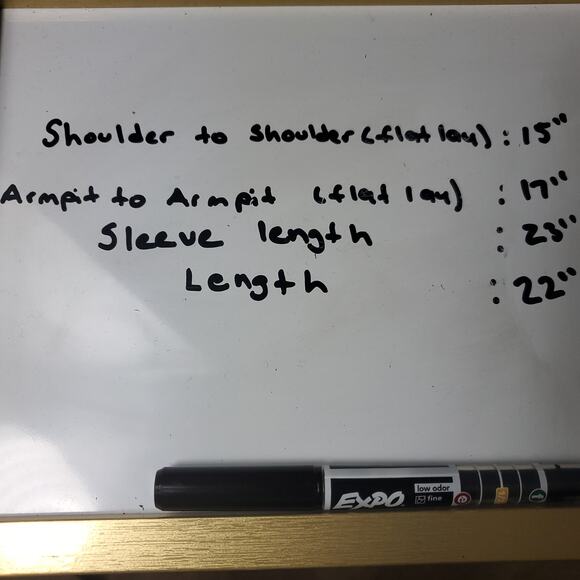 Shoulder to Shoulder (flat lay) : 15"
Armpit to Armpit (flat lay) : 17"
Sleeve length : 23"
Length : 22"
low odor
EXPO fine